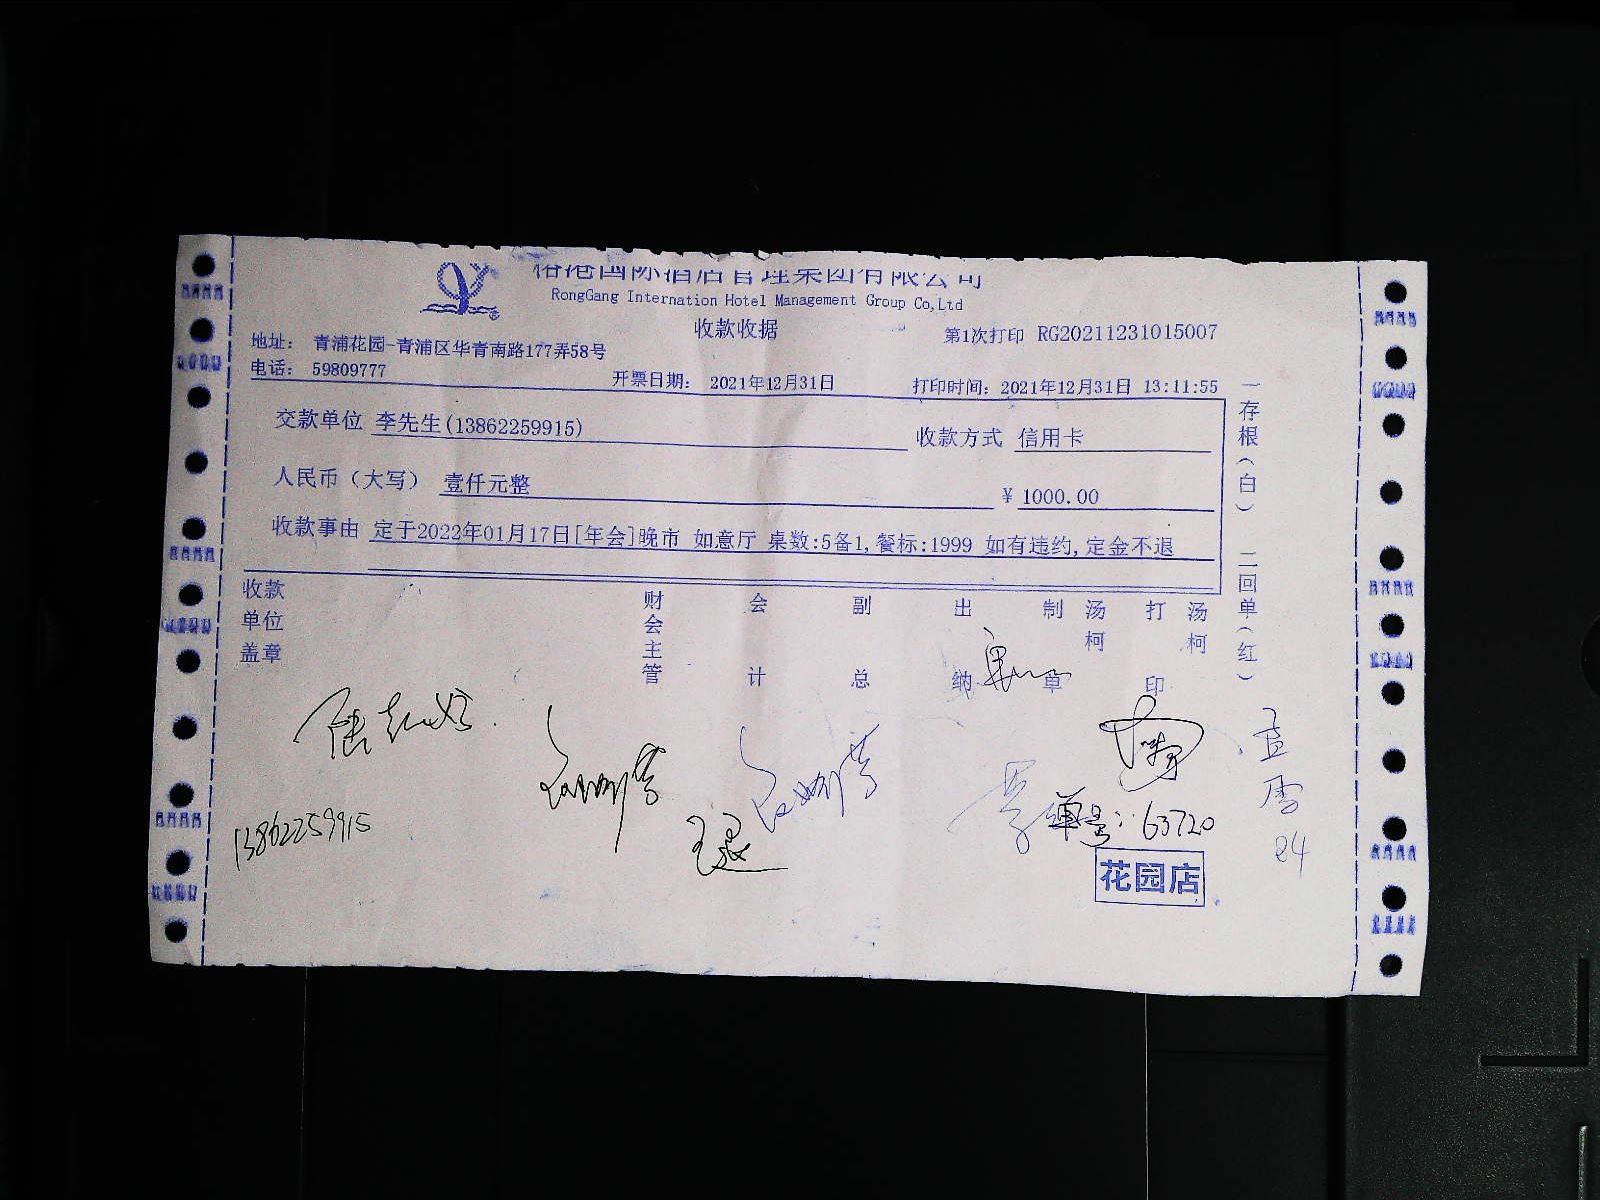 国际酒店管理集团有限公司
RongGang Internation Hotel Management Group Co,Ltd
收款收据
第1次打印 RG20211231015007
地址： 青浦花园-青浦区华青南路177弄58号
电话： 59809777
开票日期： 2021年12月31日
打印时间： 2021年12月31日 13:11:55
交款单位 李先生(13862259915)
收款方式 信用卡
人民币（大写） 壹仟元整
¥ 1000.00
收款事由 定于2022年01月17日[年会]晚市 如意厅 桌数:5备1,餐标:1999 如有违约,定金不退
一存根（白） 二回单（红）
收款单位盖章
财会主管
会计
副总
出纳
制单
汤柯
打印
汤柯
13862259915
单号：63720
花园店
24